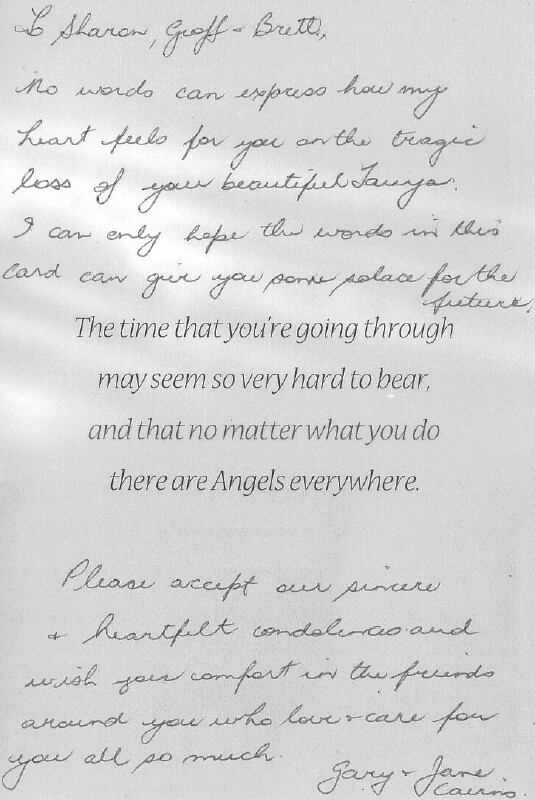 To Sharon, Geoff + Brett,
No words can express how my
heart feels for you on the tragic
loss of your beautiful Tanya.
I can only hope the words in this
card can give you some solace for the
future.
The time that you're going through
may seem so very hard to bear,
and that no matter what you do
there are Angels everywhere.
Please accept our sincere
+ heartfelt condolences and
wish you comfort in the friends
around you who love + care for
you all so much.
Gary + Jane
Cairns.